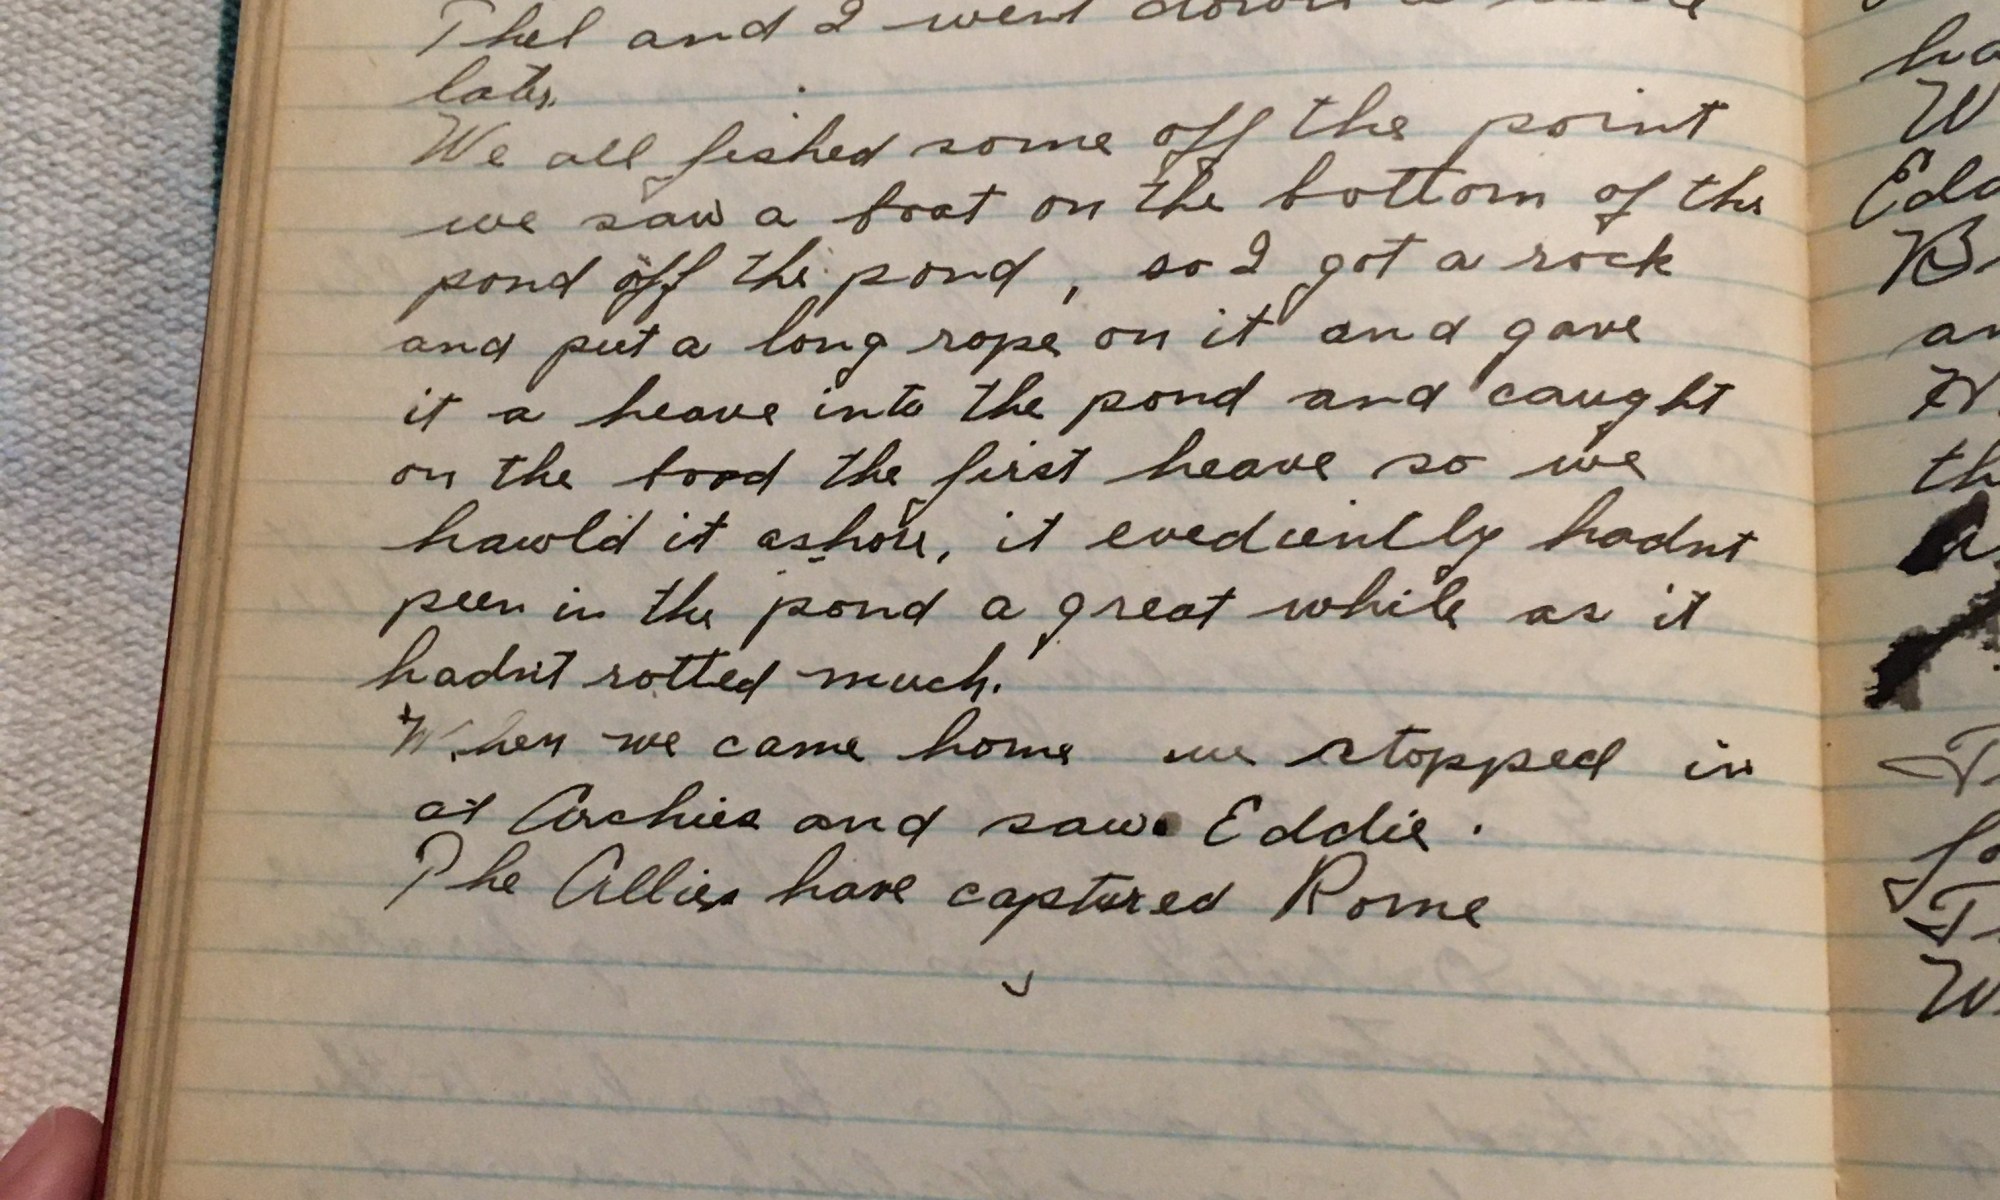 Thel and I went down a little
later.
We all fished some off the point
we saw a boat on the bottom of the
pond off the pond, so I got a rock
and put a long rope on it and gave
it a heave into the pond and caught
on the bood the first heave so we
hawld it ashore, it evediently hadnt
peen in the pond a great while as it
hadn't rotted much.
When we came home we stopped in
at Archies and saw Eddie.
The Allies have captured Rome
ha
W
Edd
B
an
th
W